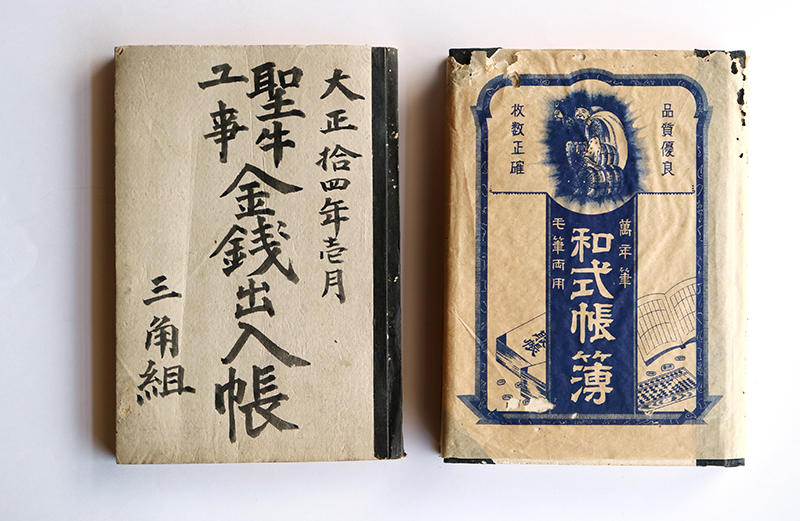 大正拾四年壱月
聖牛
工事
金銭出入帳
三角組
品質優良
枚数正確
萬年筆
毛筆両用
和式帳簿